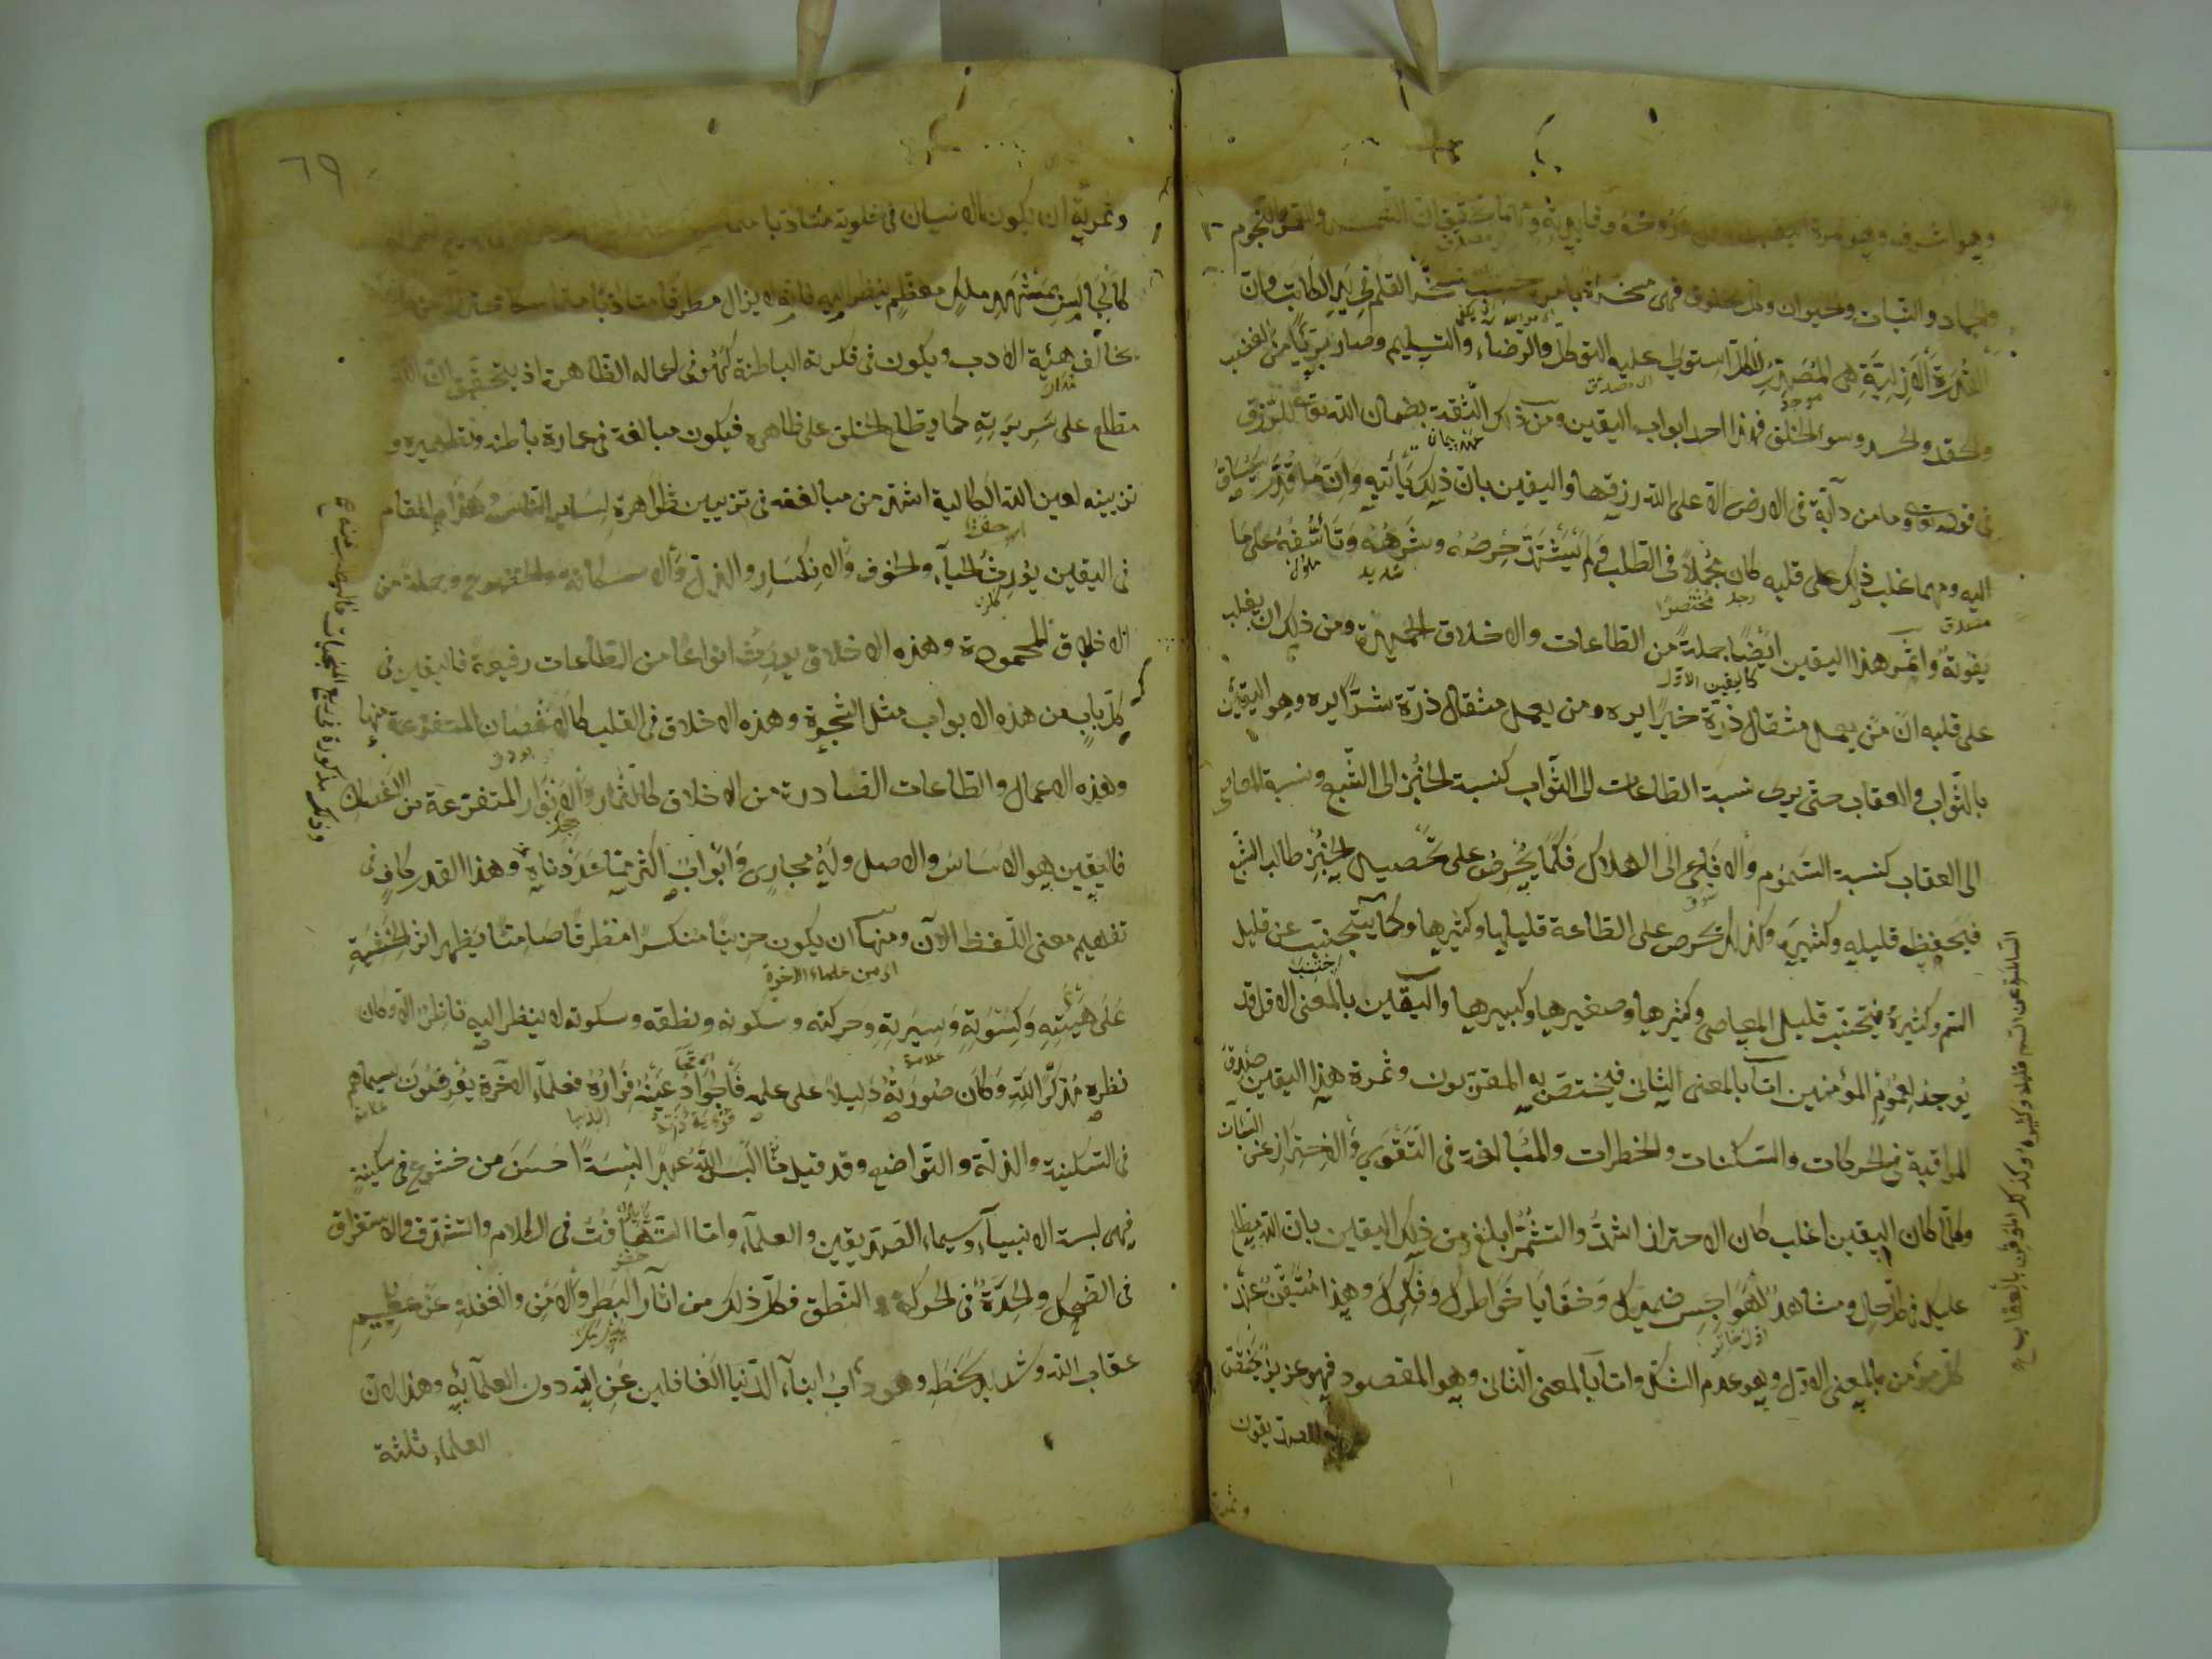 وهو اشرف وهو ثمرة روحه وفايدته ومهما تحقق ان الشمس والقمر والنجوم
والجماد والنبات والحيوان وكل مخلوق فهي مسخرة بامره حسب تسخر القلم في يد الكاتب وان
القدرة الازلية هي المصدر للكل استولى عليه التوكل والرضاء والتسليم وصار بريئا من الغضب
والحقد والحسد وسوء الخلق فهذا احد ابواب اليقين ومن ذلك الثقة بضمان الله تعالى للرزق
في قوله تعالى وما من دآبة في الارض الا على الله رزقها واليقين بان ذلك يأتيه وان ما قدر سيساق
اليه ومهما غلب ذلك على قلبه كان مجملا في الطلب ولم يشتد حرصه وشرهه وتأسفه على ما
يفوته واثمر هذا اليقين ايضا جملة من الطاعات والاخلاق الحميدة ومن ذلك ان يغلب
على قلبه ان من يعمل مثقال ذرة خيرا يره ومن يعمل مثقال ذرة شرا يره وهو اليقين
بالثواب والعقاب حتى يرى نسبة الطاعات الى الثواب كنسبة الخبز الى الشبع ونسبة المعاصي
الى العقاب كنسبة السموم والافاعي الى الهلاك فكما يحرص على تحصيل الخبز طالب الشبع
فيحفظ قليله وكثيره وكذلك يحرص على الطاعة قليلها وكثيرها وكما يتجنب عن قليل
السم وكثيره فيتجنب قليل المعاصي وكثيرها وصغيرها وكبيرها واليقين بالمعنى الاول قد
يوجد لعموم المؤمنين اما بالمعنى الثاني فيختص به المقربون وثمرة هذا اليقين صدق
المراقبة في الحركات والسكنات والخطرات والمبالغة في التقوى والاحتراز عن السيئات
وكلما كان اليقين اغلب كان الاحتراز اشد والتشمر ابلغ ومن ذلك اليقين بان الله مطلع
عليك في كل حال ومشاهد لهواجس ضميرك وخفايا خواطرك وفكرك وهذا متيقن عند
كل مؤمن بالمعنى الاول وهو عدم الشك واما بالمعنى الثاني وهو المقصود فهو عزيز يختص
به الصديقون
السالمون عن السم قليله وكثيره وكذلك الموقن بالعقاب
٦٩
وثمرته ان يكون الانسان في خلوته متادبا
كالجالس بمشهد ملك معظم ينظر اليه فانه لا يزال مطرقا متادبا متماسكا
يخالف هيئة الادب ويكون في فكرته الباطنة كهو في اعماله الظاهرة اذ يتحقق ان الله
مطلع على سريرته كما يطلع الخلق على ظاهره فيكون مبالغة في عمارة باطنه وتطهيره و
تزيينه لعين الله الكالية اشد من مبالغته في تزيين ظواهره لساير الناس وهذا المقام
في اليقين يورث الحيآء والخوف والانكسار والذل والاستكانة والخضوع وجملة من
الاخلاق المحمودة وهذه الاخلاق يورث انواعا من الطاعات رفيعة فاليقين في
كل باب من هذه الابواب مثل الشجرة وهذه الاخلاق في القلب كالاغصان المتفرعة منها
وهذه الاعمال والطاعات الصادرة من الاخلاق كالثمار والانوار المتفرعة من الاغصان
فاليقين هو الاساس والاصل وله مجاري وابواب اكثر مما عددناه وهذا القدر كاف في
تفهيم معنى اللفظ الآن ومنها ان يكون حزينا منكسرا مطرقا صامتا يظهر اثر الخشية
اي من علماء الاخرة
على هيئته وكسوته وسيرته وحركته وسكونه ونطقه وسكوته لا ينظر اليه ناظر الا وكان
نظره مذكرا لله وكان صورته دليلا على علمه فالجواد عينه فراره فعلمآء الآخرة يعرفون بسيماهم
في السكينة والذلة والتواضع وقد قيل ما البس الله عبدا لبسة احسن من خشوع في سكينة
فهي لبسة الانبيآء وسيماء الصديقين والعلمآء واما التهافت في الكلام والتشدق والاستغراق
في الضحك والحدة في الحركة والنطق فكل ذلك من اثار البطر والامن والغفلة عن عظيم
عقاب الله وشديد سخطه وهو داب ابنآء الدنيا الغافلين عن الله دون العلمآء به وهذا لان
العلماء ثلثة